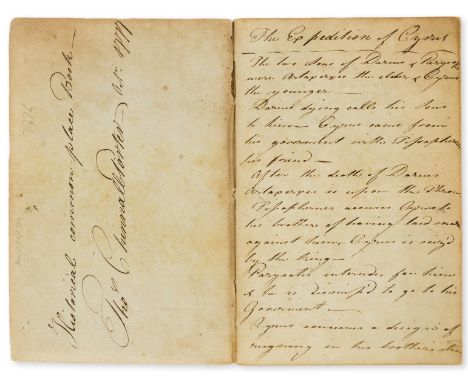 Historical common place Book —
Thos Chunnall Porter — Octr. 1777
The Expedition of Cyrus
The two Sons of Darius & Parysatis
were Artaxerxes the elder & Cyrus
the younger —
Darius dying calls his Sons
to him — Cyrus came from
his government with Tissaphernes
his friend —
After the death of Darius
Artaxerxes is upon the Throne
Tissaphernes accuses Cyrus to
his brother of having laid snares
against him, Cyrus is seiz'd
by the king —
Parysatis intercedes for him
& he is dismiss'd to go to his
Government —
Cyrus conceives a design of
reigning in his brothers